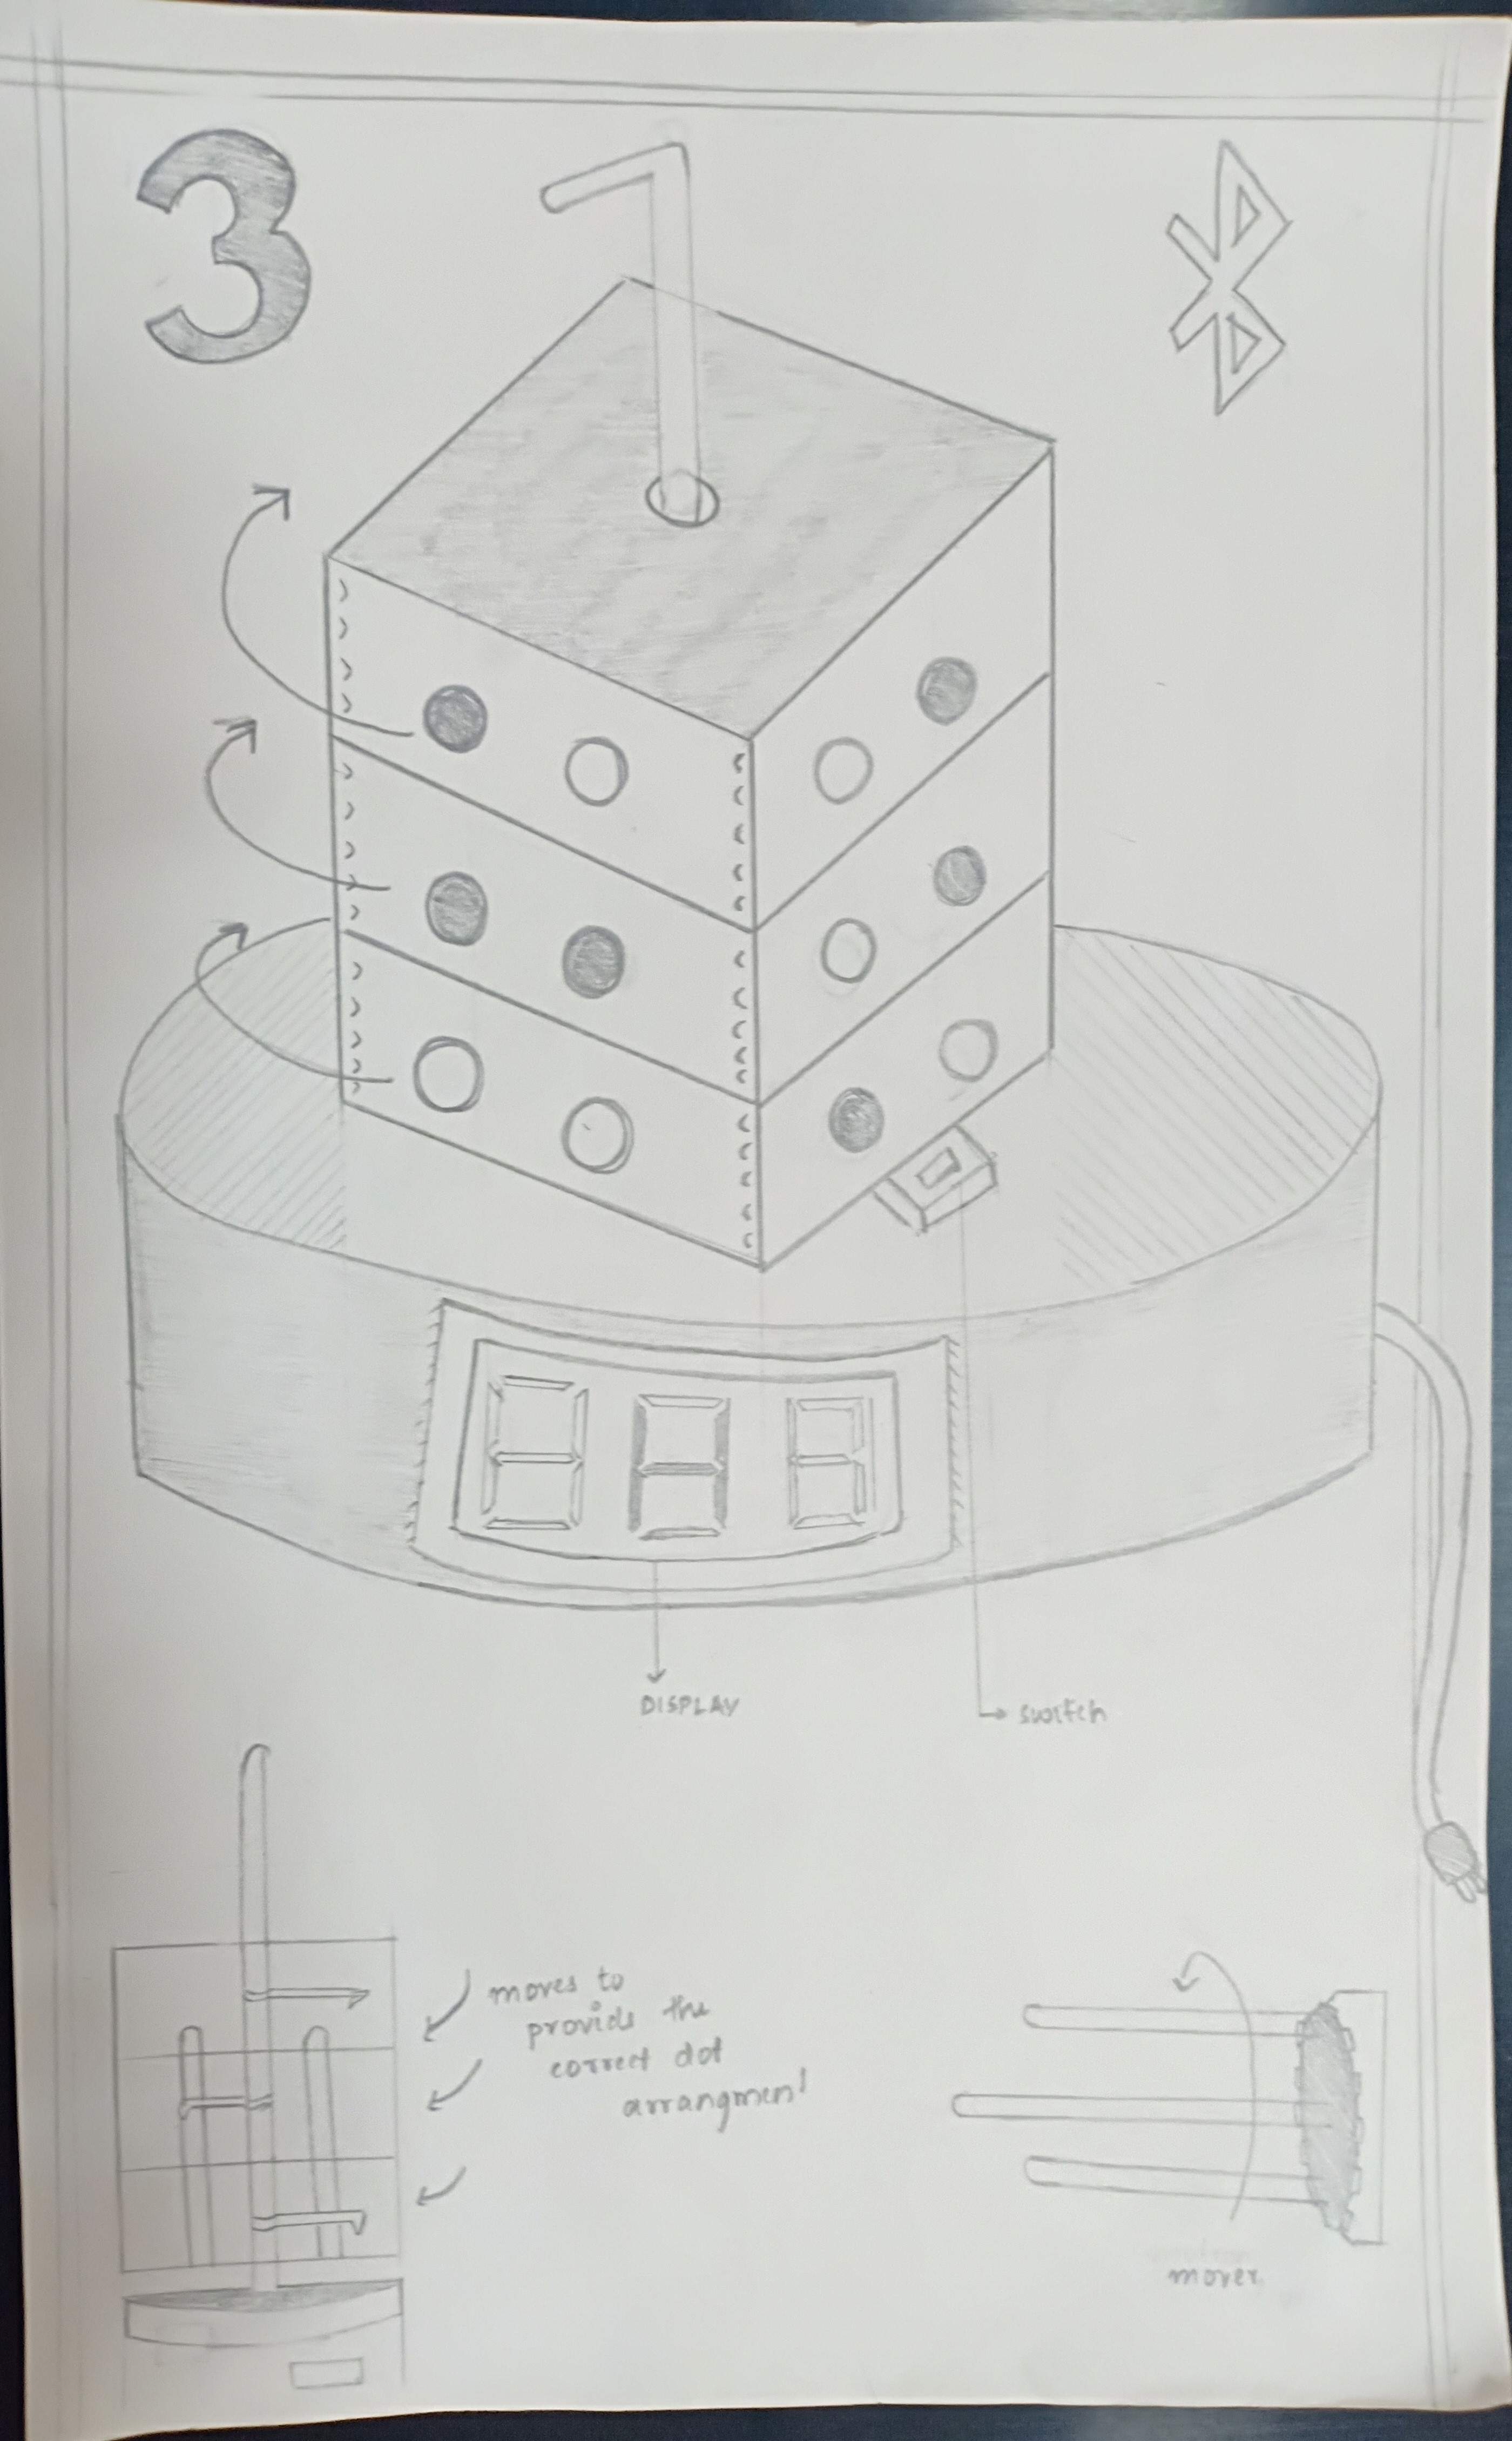 3
DISPLAY
switch
moves to
provide the
correct dot
arrangment
mover